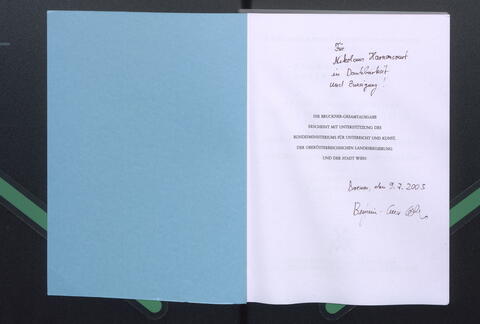 Für
Nikolaus Harnoncourt
in Dankbarkeit
und Zuneigung!
DIE BRUCKNER-GESAMTAUSGABE
ERSCHEINT MIT UNTERSTÜTZUNG DES
BUNDESMINISTERIUMS FÜR UNTERRICHT UND KUNST,
DER OBERÖSTERREICHISCHEN LANDESREGIERUNG
UND DER STADT WIEN
den 9.7.2003
Benjamin-Gunnar Cohrs